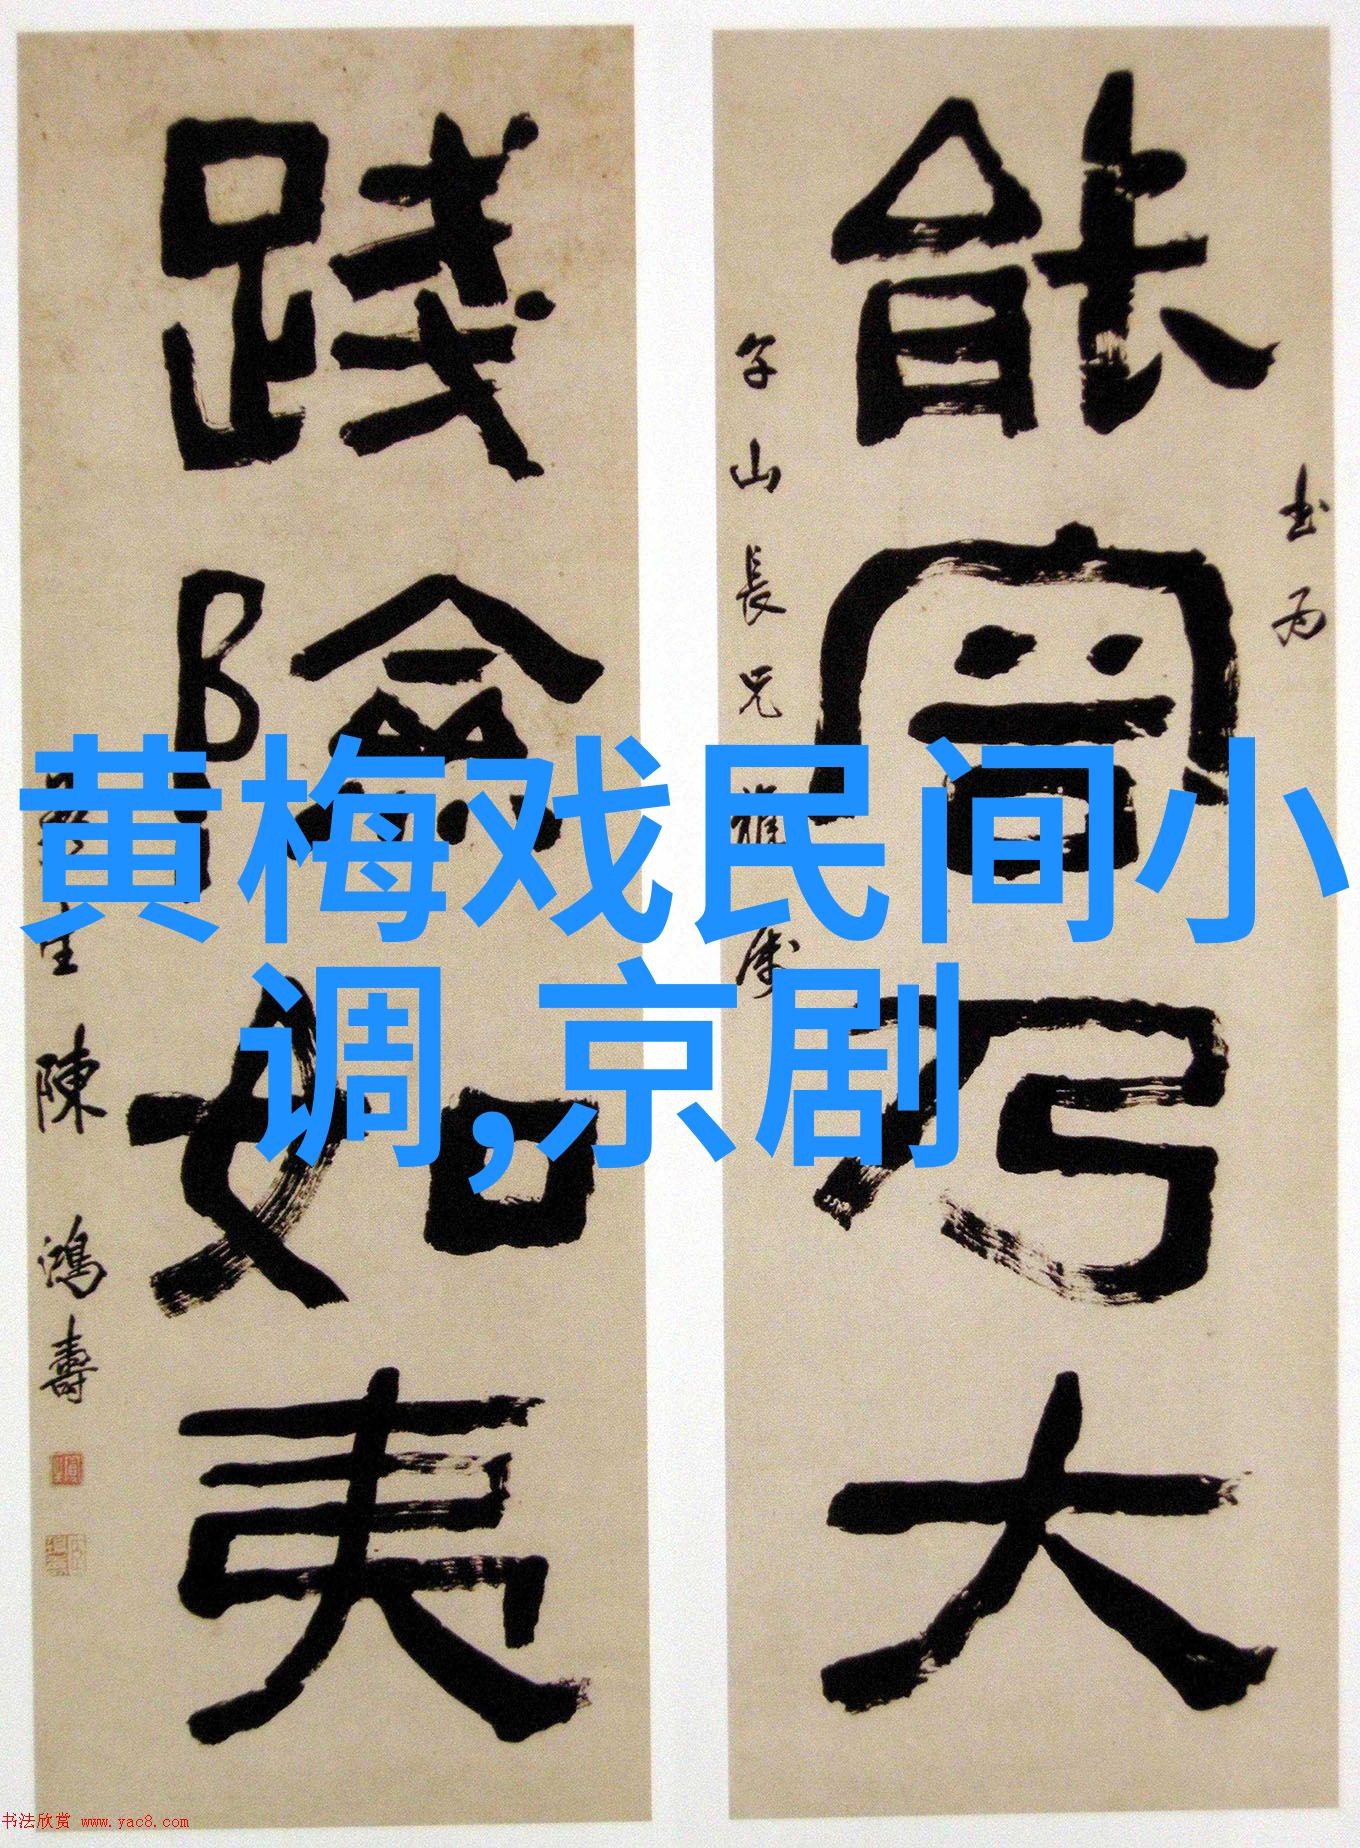 能容乃大
书为
子山長兄
雅属
践險如夷
陳鴻壽
黄梅戏民间小
调,京剧
书法欣赏 www.yac8.com